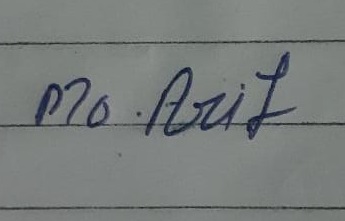 Mo. Arif